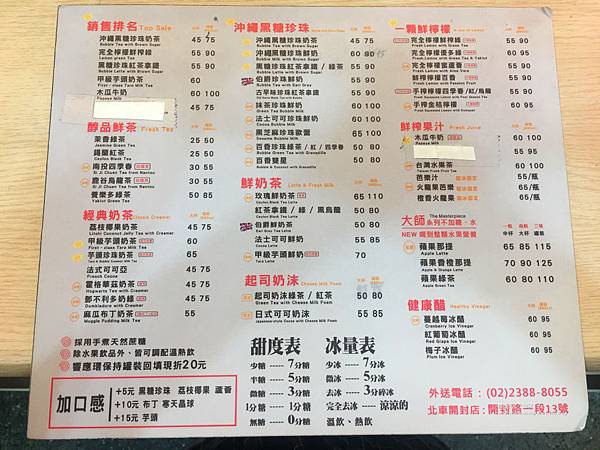 銷售排名 Top Sale
沖繩黑糖珍珠奶茶 45 75
Bubble Tea with Brown Sugar
完全檸檬鮮檸綠 55 90
Lemon green Tea
黑糖珍珠紅茶拿鐵 55 90
Bubble Latte with Brown Sugar
甲級芋頭奶茶 60
First-class Taro Milk Tea
木瓜牛奶 60 100
Papaya Milk
45 75
醇品鮮茶 Fresh Tea
茉香綠茶 25 50
Jasmine Green Tea
錫蘭紅茶 25 50
Ceylon Black Tea
南投四季春 30 55
Si Ji Chuen Tea from Nantou
鹿谷烏龍茶 30 55
養樂多綠茶 55 90
Yakult Green Tea
經典奶茶 Classic Creamer
荔枝椰果奶茶 45 75
Litchi Coconut Jelly Tea with Creamer
甲級芋頭奶茶 60
First-class Taro Milk Tea
芋頭珍珠奶茶 65
法式可可亞 45 75
French Cocoa
霍格華茲奶茶 45 75
Hogwarts Tea with Creamer
鄧不利多奶綠 45 75
Dumbledore with Creamer
麻瓜布丁奶茶 55 90
Muggle Pudding Milk Tea
採用手煮天然蔗糖
除水果飲品外、皆可調配溫熱飲
響應環保持罐裝回填現折20元
加口感
+5元 黑糖珍珠 荔枝椰果 蘆薈
+10元 布丁 寒天晶球
+15元 芋頭
沖繩黑糖珍珠
沖繩黑糖珍珠奶茶 45 75
Bubble Tea with Brown Sugar
沖繩黑糖珍珠鮮奶 60
Bubble Milk with Brown Sugar
黑糖珍珠紅茶拿鐵 / 綠茶 55 90
Bubble Latte with Brown Sugar
伯爵珍珠鮮奶茶 55 90
Bubble Tea with Earl Grey
古早味珍珠紅茶拿鐵 55 90
抹茶珍珠鮮奶 60 100
Green Tea Bubble Milk
法士可可珍珠鮮奶 60 100
Cocoa Bubble Milk
黑芝麻珍珠歐蕾 65 100
Sesame Bubble Milk
百香珍珠綠(冬/四/紅) 50 80
Passion Fruit Green Tea with Grenadille
百香雙星 50 80
Bubble & Coconut with Grenadille
鮮奶茶 Latte & Fresh Milk
玫瑰鮮奶茶 65 110
Rose Black Tea Latte
紅茶拿鐵 / 綠 / 黑烏龍 55 90
Ceylon Black Tea Latte
伯爵鮮奶茶 55 90
Earl Gray Tea Latte
法士可可鮮奶 55 90
Cocoa Latte
甲級芋頭鮮奶 70
Taro Latte
起司奶沫 Cheese Milk Foam
起司奶沫綠茶 / 紅茶 50 80
Green Tea with Cheese Milk Foam
日式可可奶沫 55 90
Japanese Cocoa with Cheese Milk Foam
甜度表
少糖 ---- 7分糖
半糖 ---- 5分糖
微糖 ---- 3分糖
1分糖 ---- 1分糖
無糖 ---- 0分糖
冰量表
少冰 ---- 7分冰
微冰 ---- 5分冰
去冰 ---- 3分碎冰
完全去冰 ---- 涼涼的
溫飲、熱飲
一顆鮮檸檬
完全檸檬鮮檸綠 55 90
Fresh Lemon with Green Tea
完全檸檬優多綠 60 95
Fresh Lemon with Green Tea & Yakult
完全檸檬蜜蘆薈 55 90
手榨檸檬四季春/紅/烏龍 55 90
手榨金桔檸檬 60 95
鮮榨果汁 Fresh Juice
木瓜牛奶 60 100
Papaya Milk
55 95
台灣水果茶 60 100
Taiwan Fruit Tea
芭樂汁 55/瓶
火龍果芭樂 65/瓶
橙香火龍果 65/瓶
大師 The Masterpiece
系列不加糖、水
一顆 兩顆 三顆
中杯 大杯 罐裝
NEW 喝到整顆水果營養
蘋果那提 65 85 115
Apple Latte
蘋果香橙那提 70 90 125
Apple & Orange Latte
蘋果綠茶 60 80 110
Apple Green Tea
健康醋 Healthy Vinegar
蔓越莓冰醋 60 95
Cranberry Ice Vinegar
紅葡萄冰醋 60 95
Red Grape Ice Vinegar
梅子冰醋 60 95
Plum Ice Vinegar
外送電話：(02)2388-8055
北車開封店：開封路一段13號